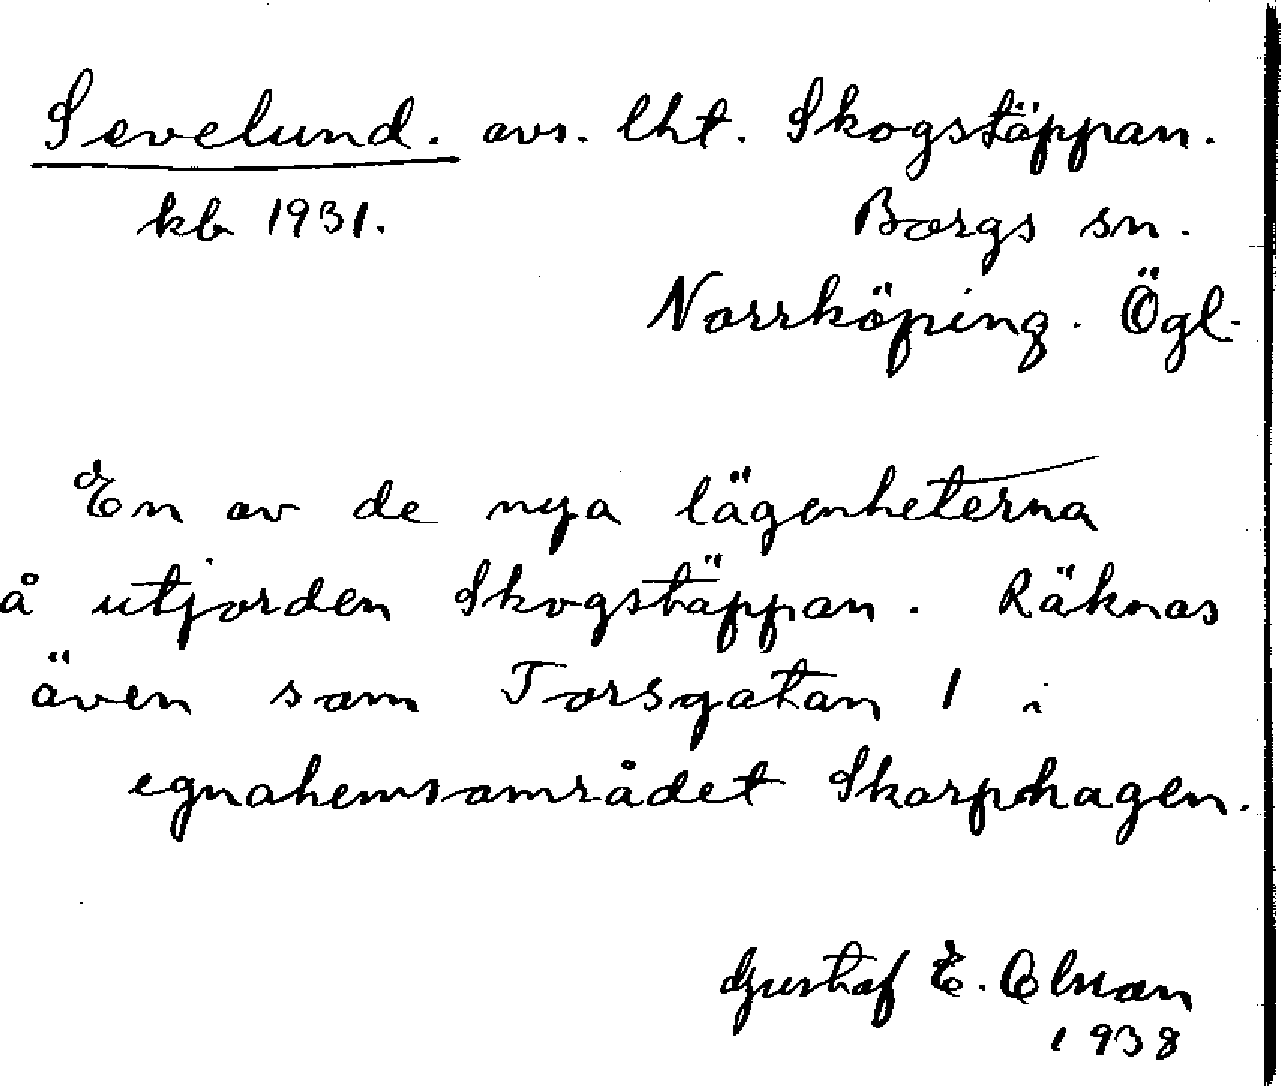 Sevelund. avs. lht. Skogstäppan.
kb 1931. Borgs sn.
Norrköping. Ögl.
En av de nya lägenheterna
å utjorden Skogstäppan. Räknas
även som Torsgatan 1 i
egnahemsområdet Skarphagen.
Gustaf E.
1938